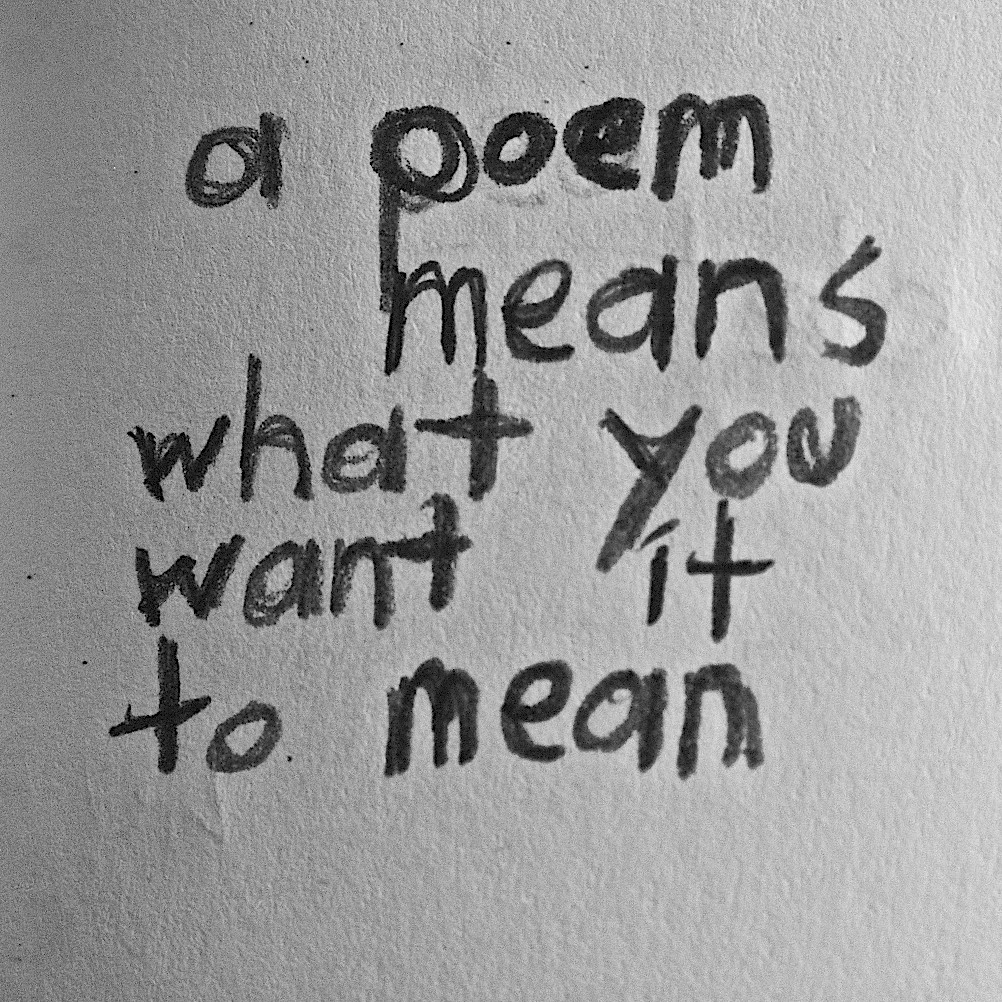 a poem
means
what you
want it
to mean